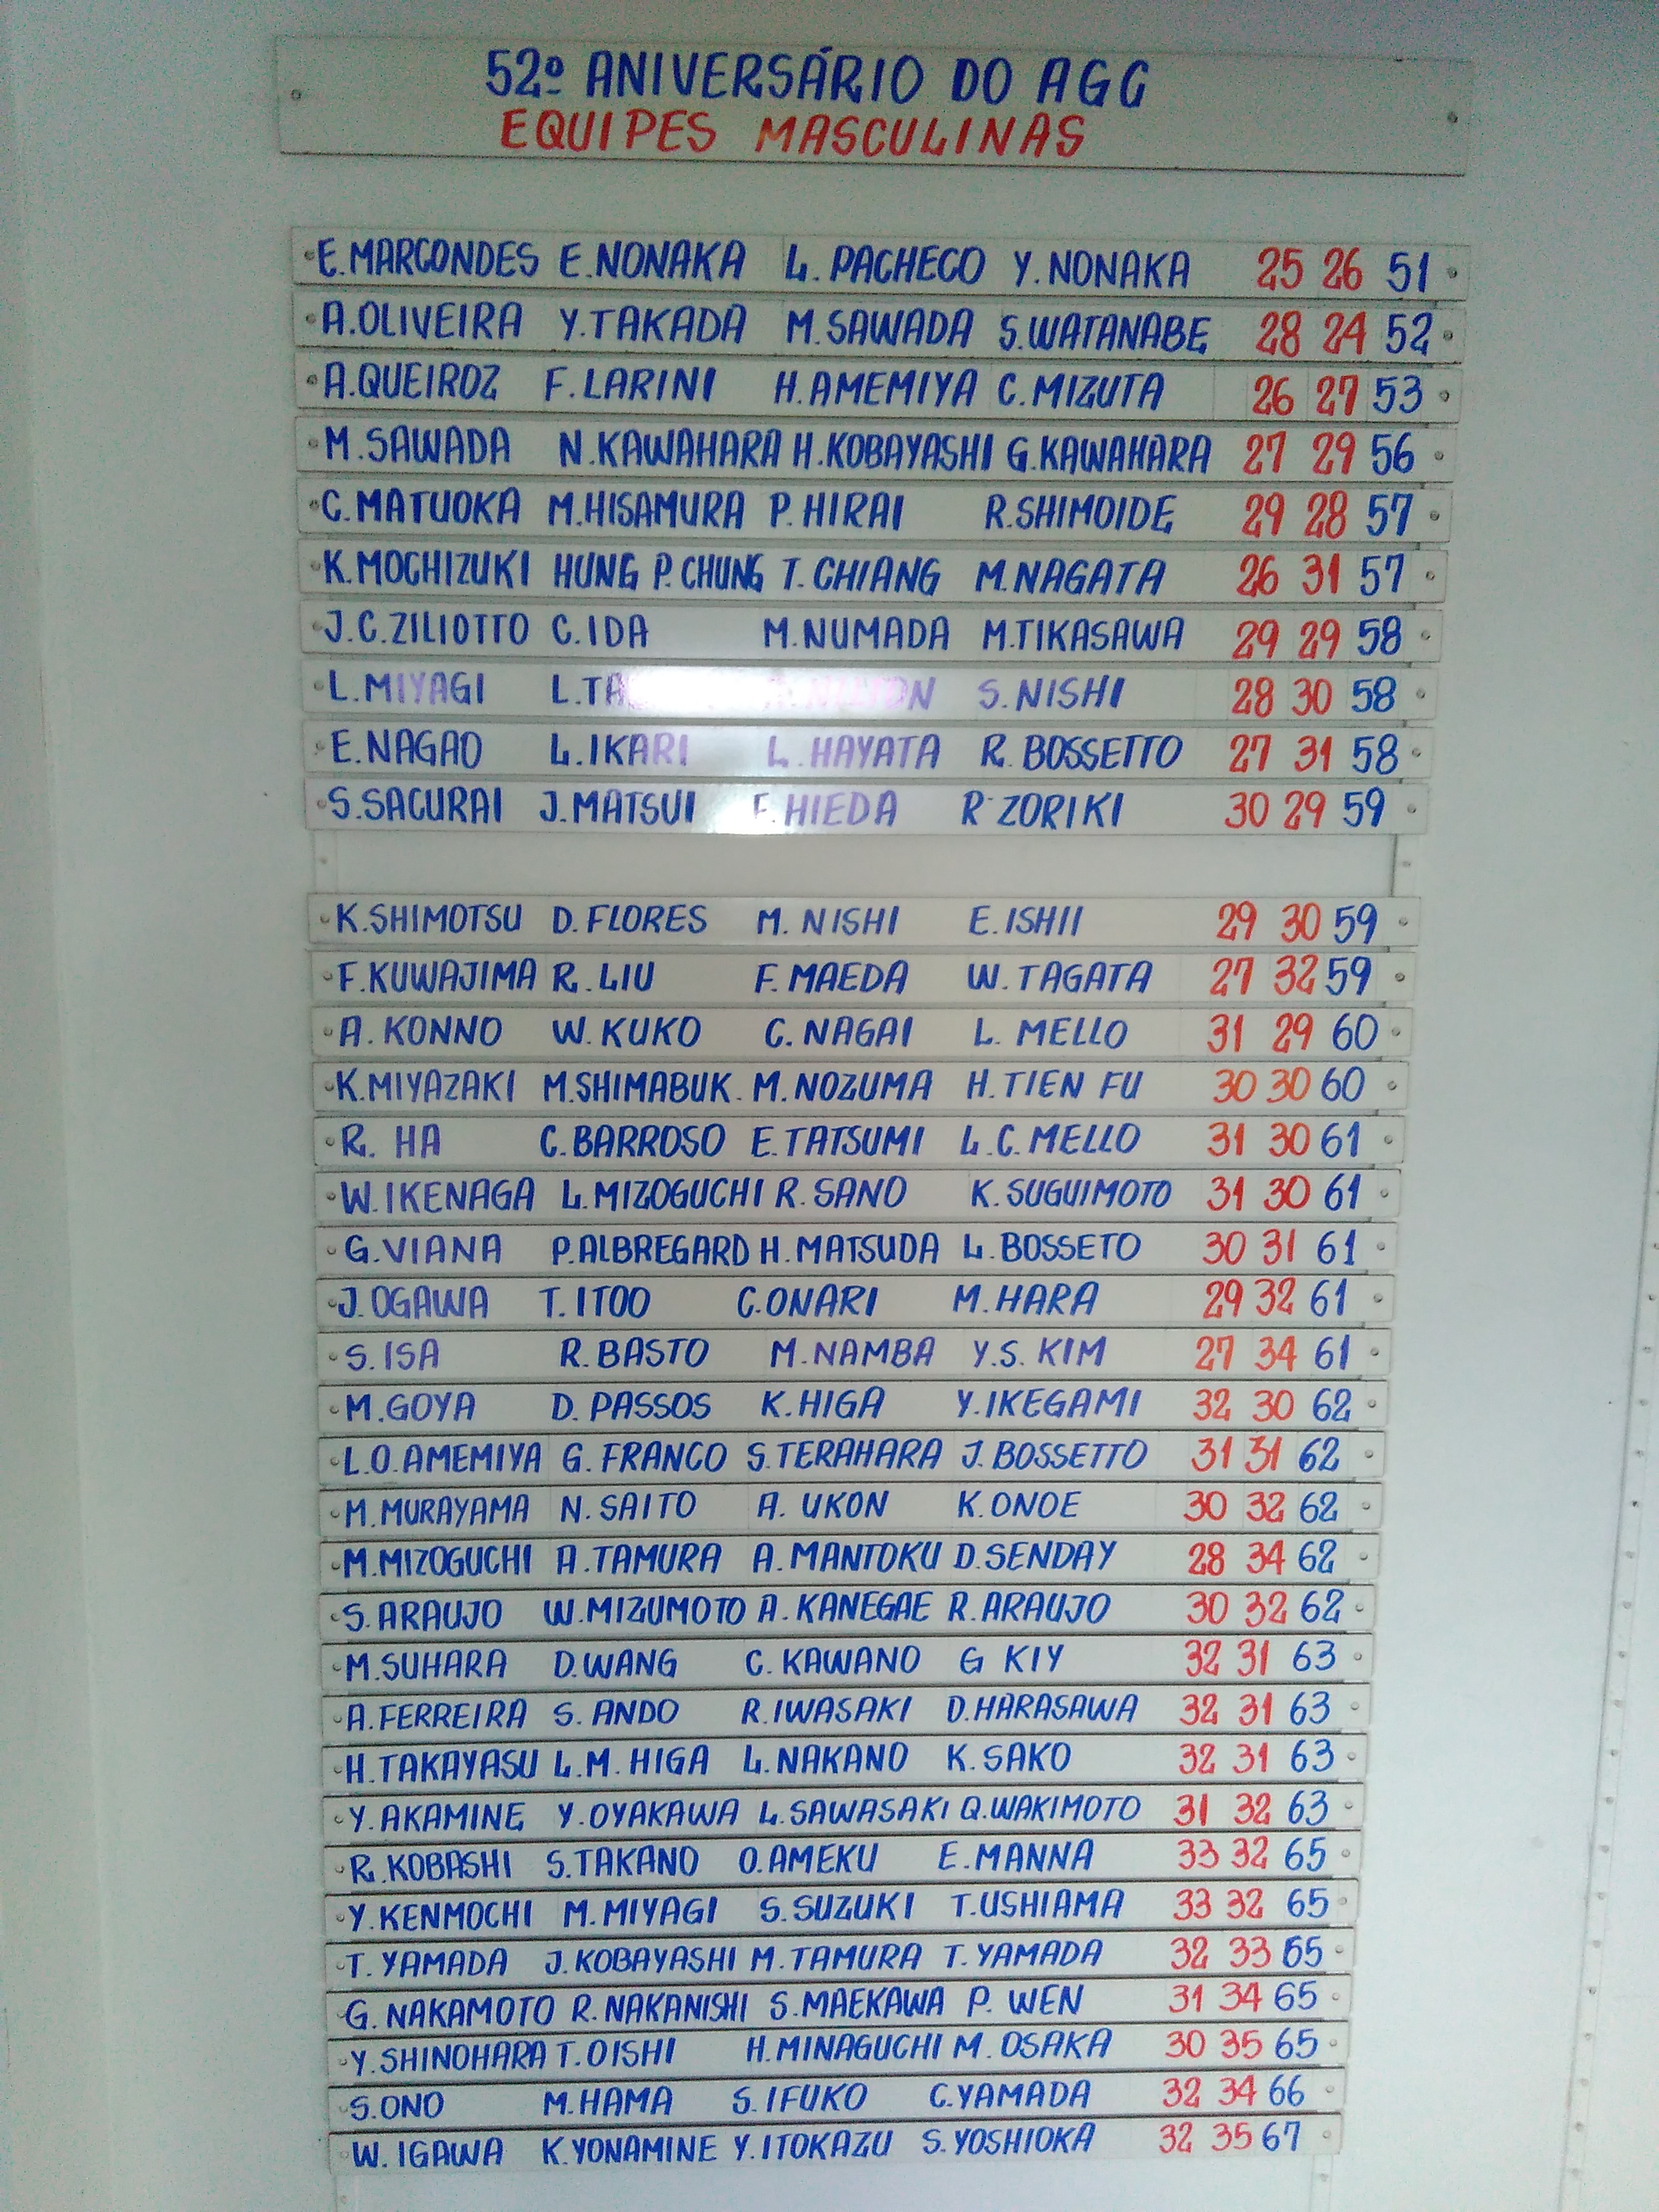 52º ANIVERSÁRIO DO AGC
EQUIPES MASCULINAS
E.MARCONDES E.NONAKA L. PACHECO Y.NONAKA 25 26 51
A.OLIVEIRA Y.TAKADA M.SAWADA S.WATANABE 28 24 52
A.QUEIROZ F.LARINI H.AMEMIYA C.MIZUTA 26 27 53
M.SAWADA N.KAWAHARA H.KOBAYASHI G.KAWAHARA 27 29 56
C.MATUOKA M.HISAMURA P.HIRAI R.SHIMOIDE 29 28 57
K.MOCHIZUKI HUNG P.CHUNG T.CHIANG M.NAGATA 26 31 57
J.C.ZILIOTTO C.IDA M.NUMADA M.TIKASAWA 29 29 58
L.MIYAGI S.NISHI 28 30 58
E.NAGAO L.IKARI L.HAYATA R.BOSSETTO 27 31 58
S.SACURAI J.MATSUI F.HIEDA R ZORIKI 30 29 59
K.SHIMOTSU D.FLORES M.NISHI E.ISHII 29 30 59
F.KUWAJIMA R.LIU F.MAEDA W.TAGATA 27 32 59
A.KONNO W.KUKO C.NAGAI L.MELLO 31 29 60
K.MIYAZAKI M.SHIMABUK. M.NOZUMA H.TIEN FU 30 30 60
R. HA C.BARROSO E.TATSUMI L.C.MELLO 31 30 61
W.IKENAGA L.MIZOGUCHI R.SANO K.SUGUIMOTO 31 30 61
G.VIANA P.ALBREGARD H.MATSUDA L.BOSSETO 30 31 61
J.OGAWA T.ITOO C.ONARI M.HARA 29 32 61
S.ISA R.BASTO M.NAMBA Y.S.KIM 27 34 61
M.GOYA D.PASSOS K.HIGA Y.IKEGAMI 32 30 62
L.O.AMEMIYA G.FRANCO S.TERAHARA J.BOSSETTO 31 31 62
M.MURAYAMA N.SAITO A.UKON K.ONOE 30 32 62
M.MIZOGUCHI A.TAMURA A.MANTOKU D.SENDAY 28 34 62
S.ARAUJO W.MIZUMOTO A.KANEGAE R.ARAUJO 30 32 62
M.SUHARA D.WANG C.KAWANO G KIY 32 31 63
A.FERREIRA S.ANDO R.IWASAKI D.HARASAWA 32 31 63
H.TAKAYASU L.M.HIGA L.NAKANO K.SAKO 32 31 63
Y.AKAMINE Y.OYAKAWA L.SAWASAKI Q.WAKIMOTO 31 32 63
R.KOBASHI S.TAKANO O.AMEKU E.MANNA 33 32 65
Y.KENMOCHI M.MIYAGI S.SUZUKI T.USHIAMA 33 32 65
T.YAMADA J.KOBAYASHI M.TAMURA T.YAMADA 32 33 65
G.NAKAMOTO R.NAKANISHI S.MAEKAWA P.WEN 31 34 65
Y.SHINOHARA T.OISHI H.MINAGUCHI M.OSAKA 30 35 65
S.ONO M.HAMA S.IFUKO C.YAMADA 32 34 66
W.IGAWA K.YONAMINE Y.ITOKAZU S.YOSHIOKA 32 35 67